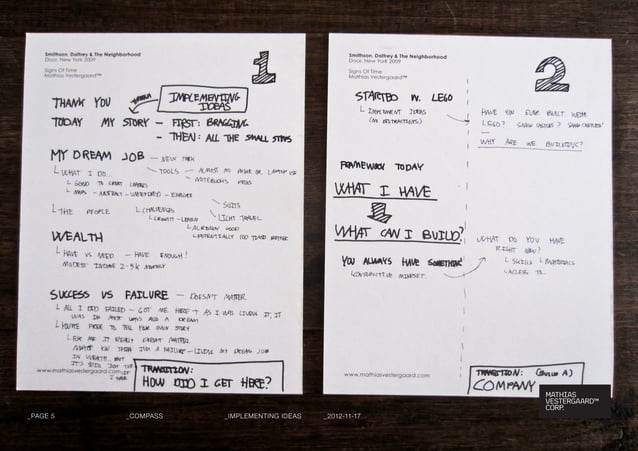 Smithson, Daltrey & The Neighborhood
Door, New York 2009
Signs Of Time
Mathias Vestergaard™
1
THANK YOU
IMPLEMENTING IDEAS
TODAY MY STORY - FIRST: BRAGGING
- THEN: ALL THE SMALL STEPS
MY DREAM JOB - NEW YORK
WHAT I DO - TOOLS - ALMOST NO PHONE OR LAPTOP
NOTEBOOKS PENS
GOOD TO GREAT LEADERS
MAPS - ABSTRACT - UNDEFINED - EXPLORE
THE PEOPLE
CHALLENGES
GROWTH - LEARN
SUITS
LIGHT TRAVEL
ALREADY GOOD
POTENTIALLY
WEALTH
HAVE VS NEED - HAVE ENOUGH!
MODEST INCOME 2-5K MONTHLY
SUCCESS VS FAILURE - DOESN'T MATTER
ALL I DID FAILED - GOT ME HERE + AS I WAS LIVING IT, IT
WAS IN MANY WAYS ALSO A DREAM
YOU'RE FREE TO TELL YOUR OWN STORY
FOR ME IT REALLY DOESN'T MATTER.
MAYBE YOU THINK I'M A FAILURE - LIVING MY DREAM JOB
IN WEALTH, BUT
www.mathiasvestergaard.com
TRANSITION:
HOW DID I GET HERE?
Smithson, Daltrey & The Neighborhood
Door, New York 2009
Signs Of Time
Mathias Vestergaard™
2
STARTED W. LEGO
IMPLEMENT IDEAS
(NO RESTRICTIONS)
HAVE YOU EVER BUILT WITH
LEGO? SAND CASTLES?
WHY ARE WE BUILDING?
FRAMEWORK TODAY
WHAT I HAVE
WHAT CAN I BUILD?
YOU ALWAYS HAVE SOMETHING
CONSTRUCTIVE MINDSET
WHAT DO YOU HAVE
RIGHT NOW?
SKILLS MATERIALS
ACCESS TO...
www.mathiasvestergaard.com
TRANSITION: (BUILD A)
COMPANY
_PAGE 5 _COMPASS _IMPLEMENTING IDEAS _2012-11-17
MATHIAS
VESTERGAARD™
CORP.